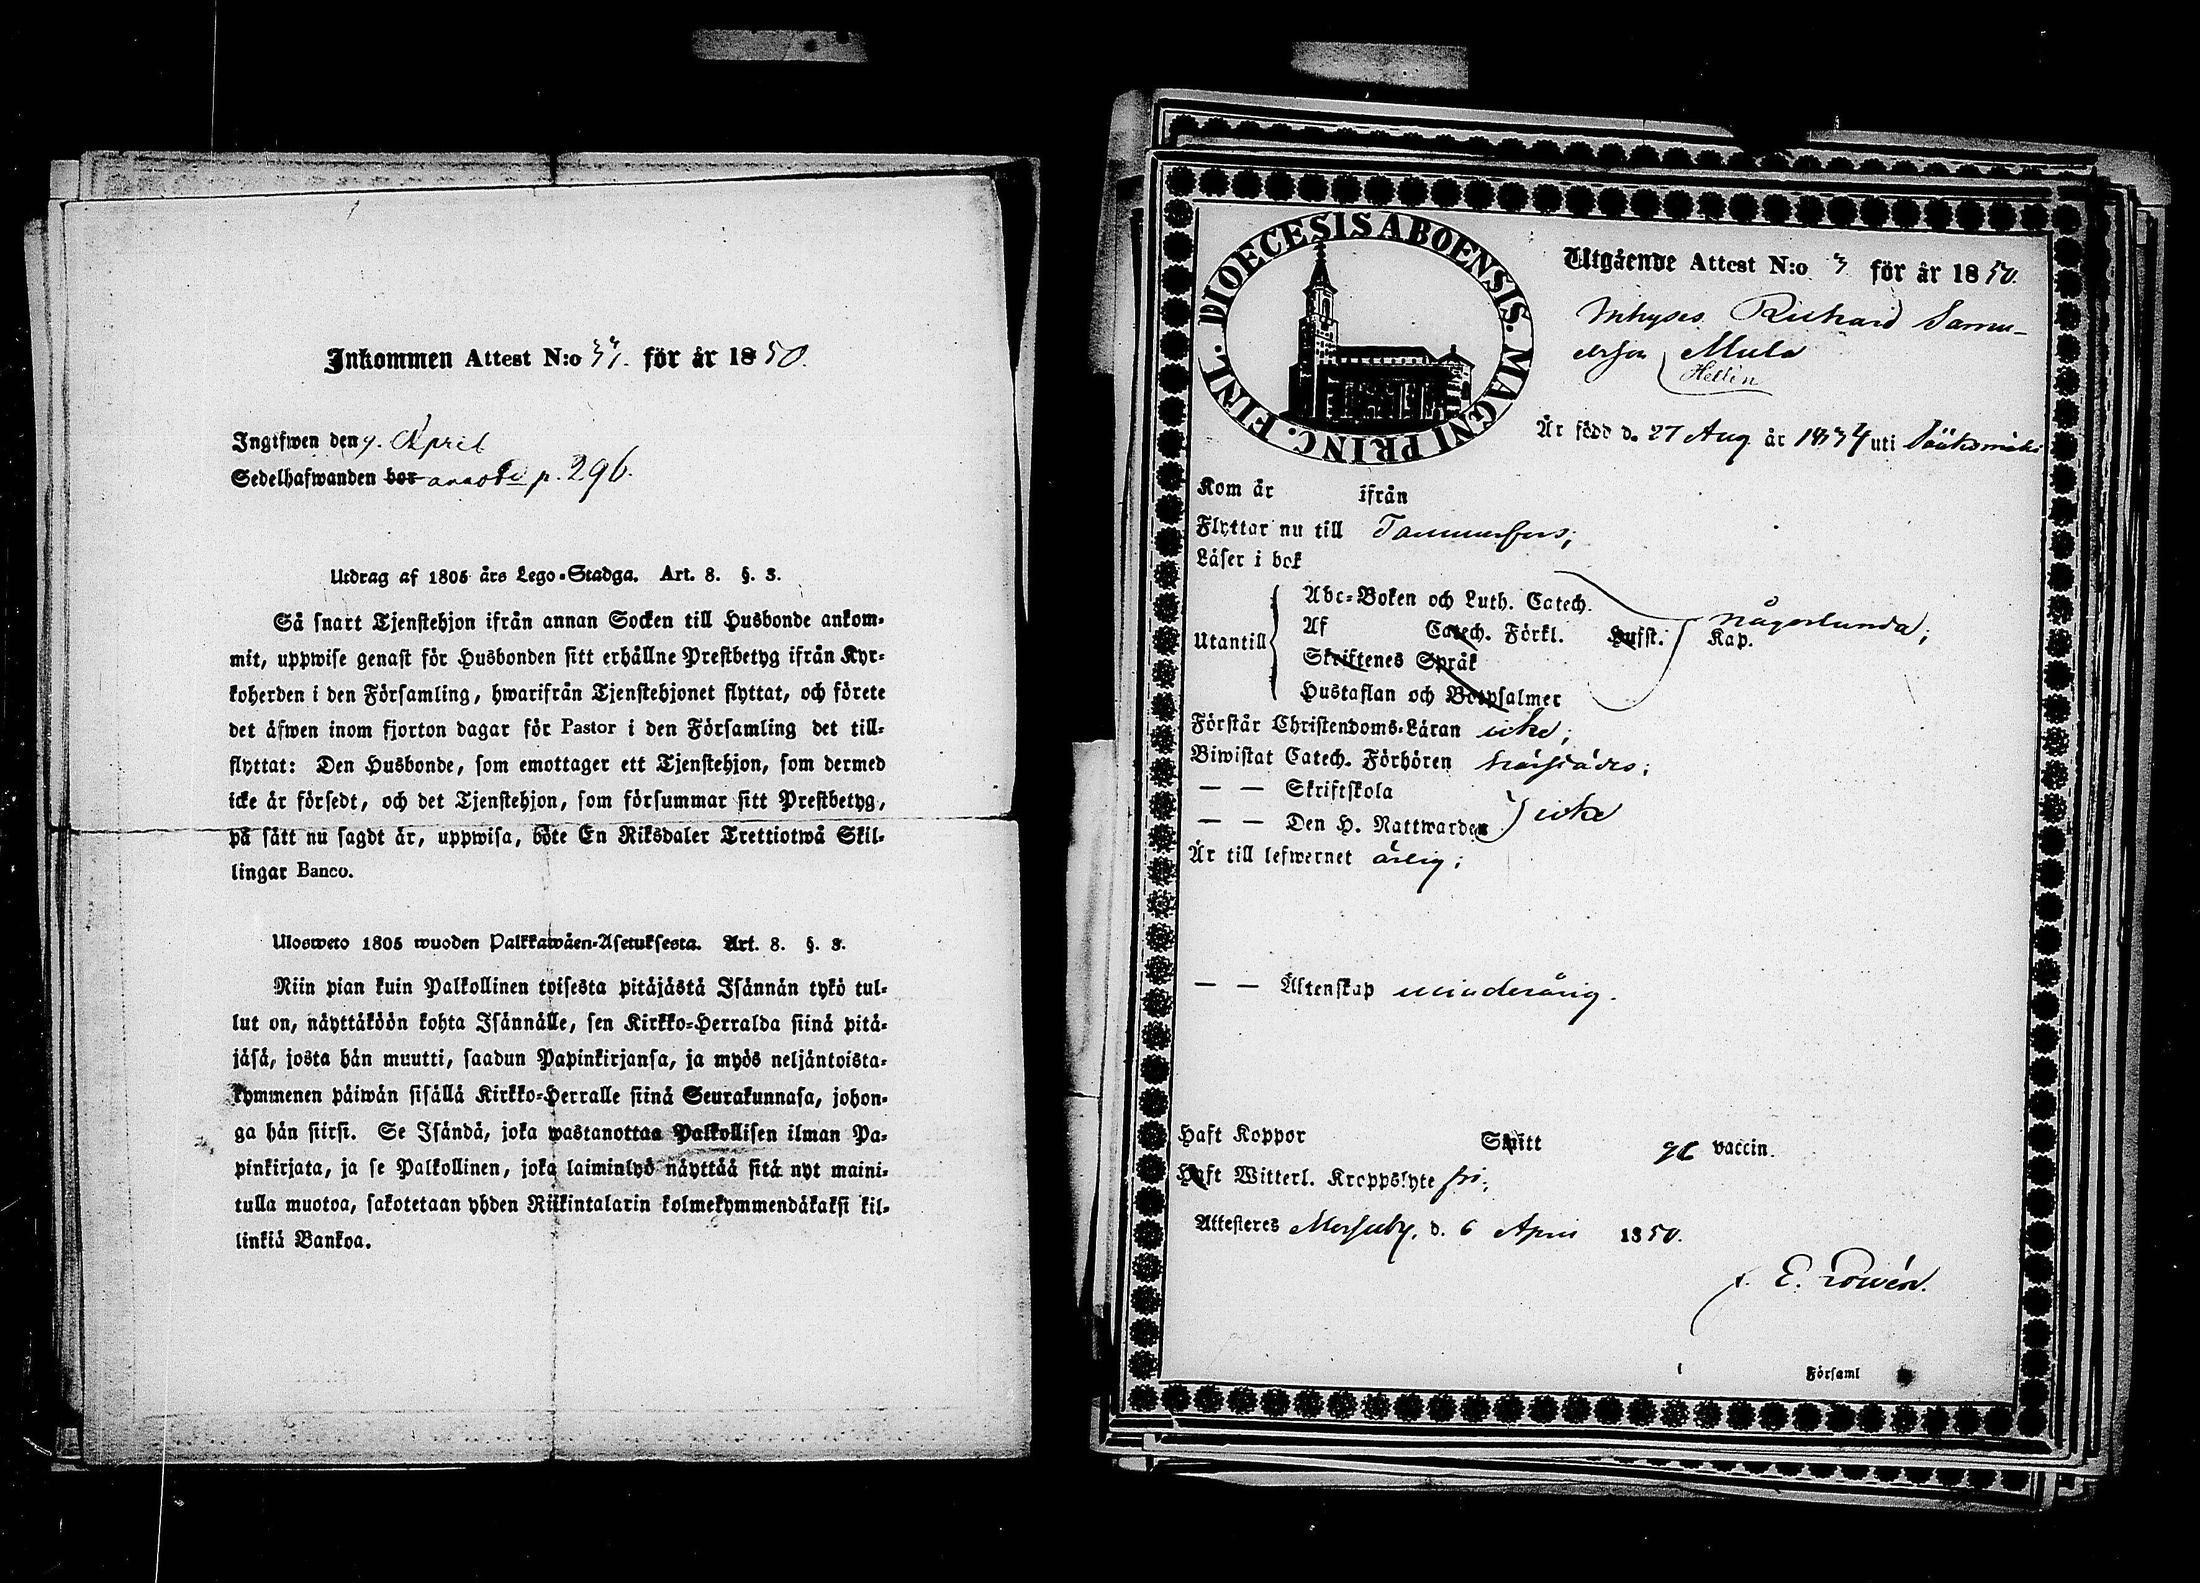 Inkommen Attest N:o 37. för år 1850.
Ingifwen den 7. April
Sedelhafwanden bor annoterd p. 296.
Utdrag af 1805 års Lego-Stadga. Art. 8. §. 3.
Så snart Tjenstehjon ifrån annan Socken till Husbonde ankom-
mit, uppwise genast för Husbonden sitt erhållne Prestbetyg ifrån Kyr-
koherden i den Församling, hwarifrån Tjenstehjonet flyttat, och förete
det äfwen inom fjorton dagar för Pastor i den Församling det till-
flyttat: Den Husbonde, som emottager ett Tjenstehjon, som dermed
icke är försedt, och det Tjenstehjon, som försummar sitt Prestbetyg,
på sätt nu sagdt är, uppwisa, böte En Riksdaler Trettiotwå Skil-
lingar Banco.
Ulosweto 1805 wuoden Palkkawäen-Asetuksesta. Art. 8. §. 3.
Niin pian kuin Palkollinen toisesta pitäjästä Isännän tykö tul-
lut on, näyttäköön kohta Isännälle, sen Kirkko-Herralda siinä pitä-
jäsä, josta hän muutti, saadun Papinkirjansa, ja myös neljäntoista-
kymmenen päiwän sisällä Kirkko-Herralle siinä Seurakunnasa, johon-
ga hän siirsi. Se Isändä, joka wastanottaa Palkollisen ilman Pa-
pinkirjata, ja se Palkollinen, joka laiminlyö näyttää sitä nyt maini-
tulla muotoa, sakotetaan yhden Riikintalarin kolmekymmendäkaksi kil-
linkiä Bankoa.
DIOECESIS ABOENSIS. MAGNI PRINC. FINL.
Utgående Attest N:o 3 för år 1850.
Inhyses Richard Samu-
elsson Mula
Hellin
Är född d. 27 Aug år 1834 uti Sääksmäki
Kom år ifrån
Flyttar nu till Tammerfors;
Läser i bok
Abc-Boken och Luth. Catech.
någorlunda;
Utantill Af Catech. Förkl. Hufst. Kap.
Skriftenes Språk
Hustaflan och Botpsalmer
Förstår Christendoms-Läran icke;
Biwistat Catech. Förhören härstädes;
— — Skriftskola
— — Den H. Nattwarden icke
Är till lefwernet ärlig;
— — Äktenskap minderårig.
Haft Koppor Smitt gl vaccin.
Haft Witterl. Kroppslyte fri;
Attesteres d. 6 April 1850.
E.
Församl